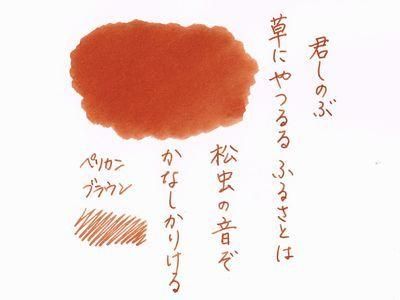 君しのぶ
草にやつるる ふるさとは
松虫の音ぞ
かなしかりける
ペリカン
ブラウン